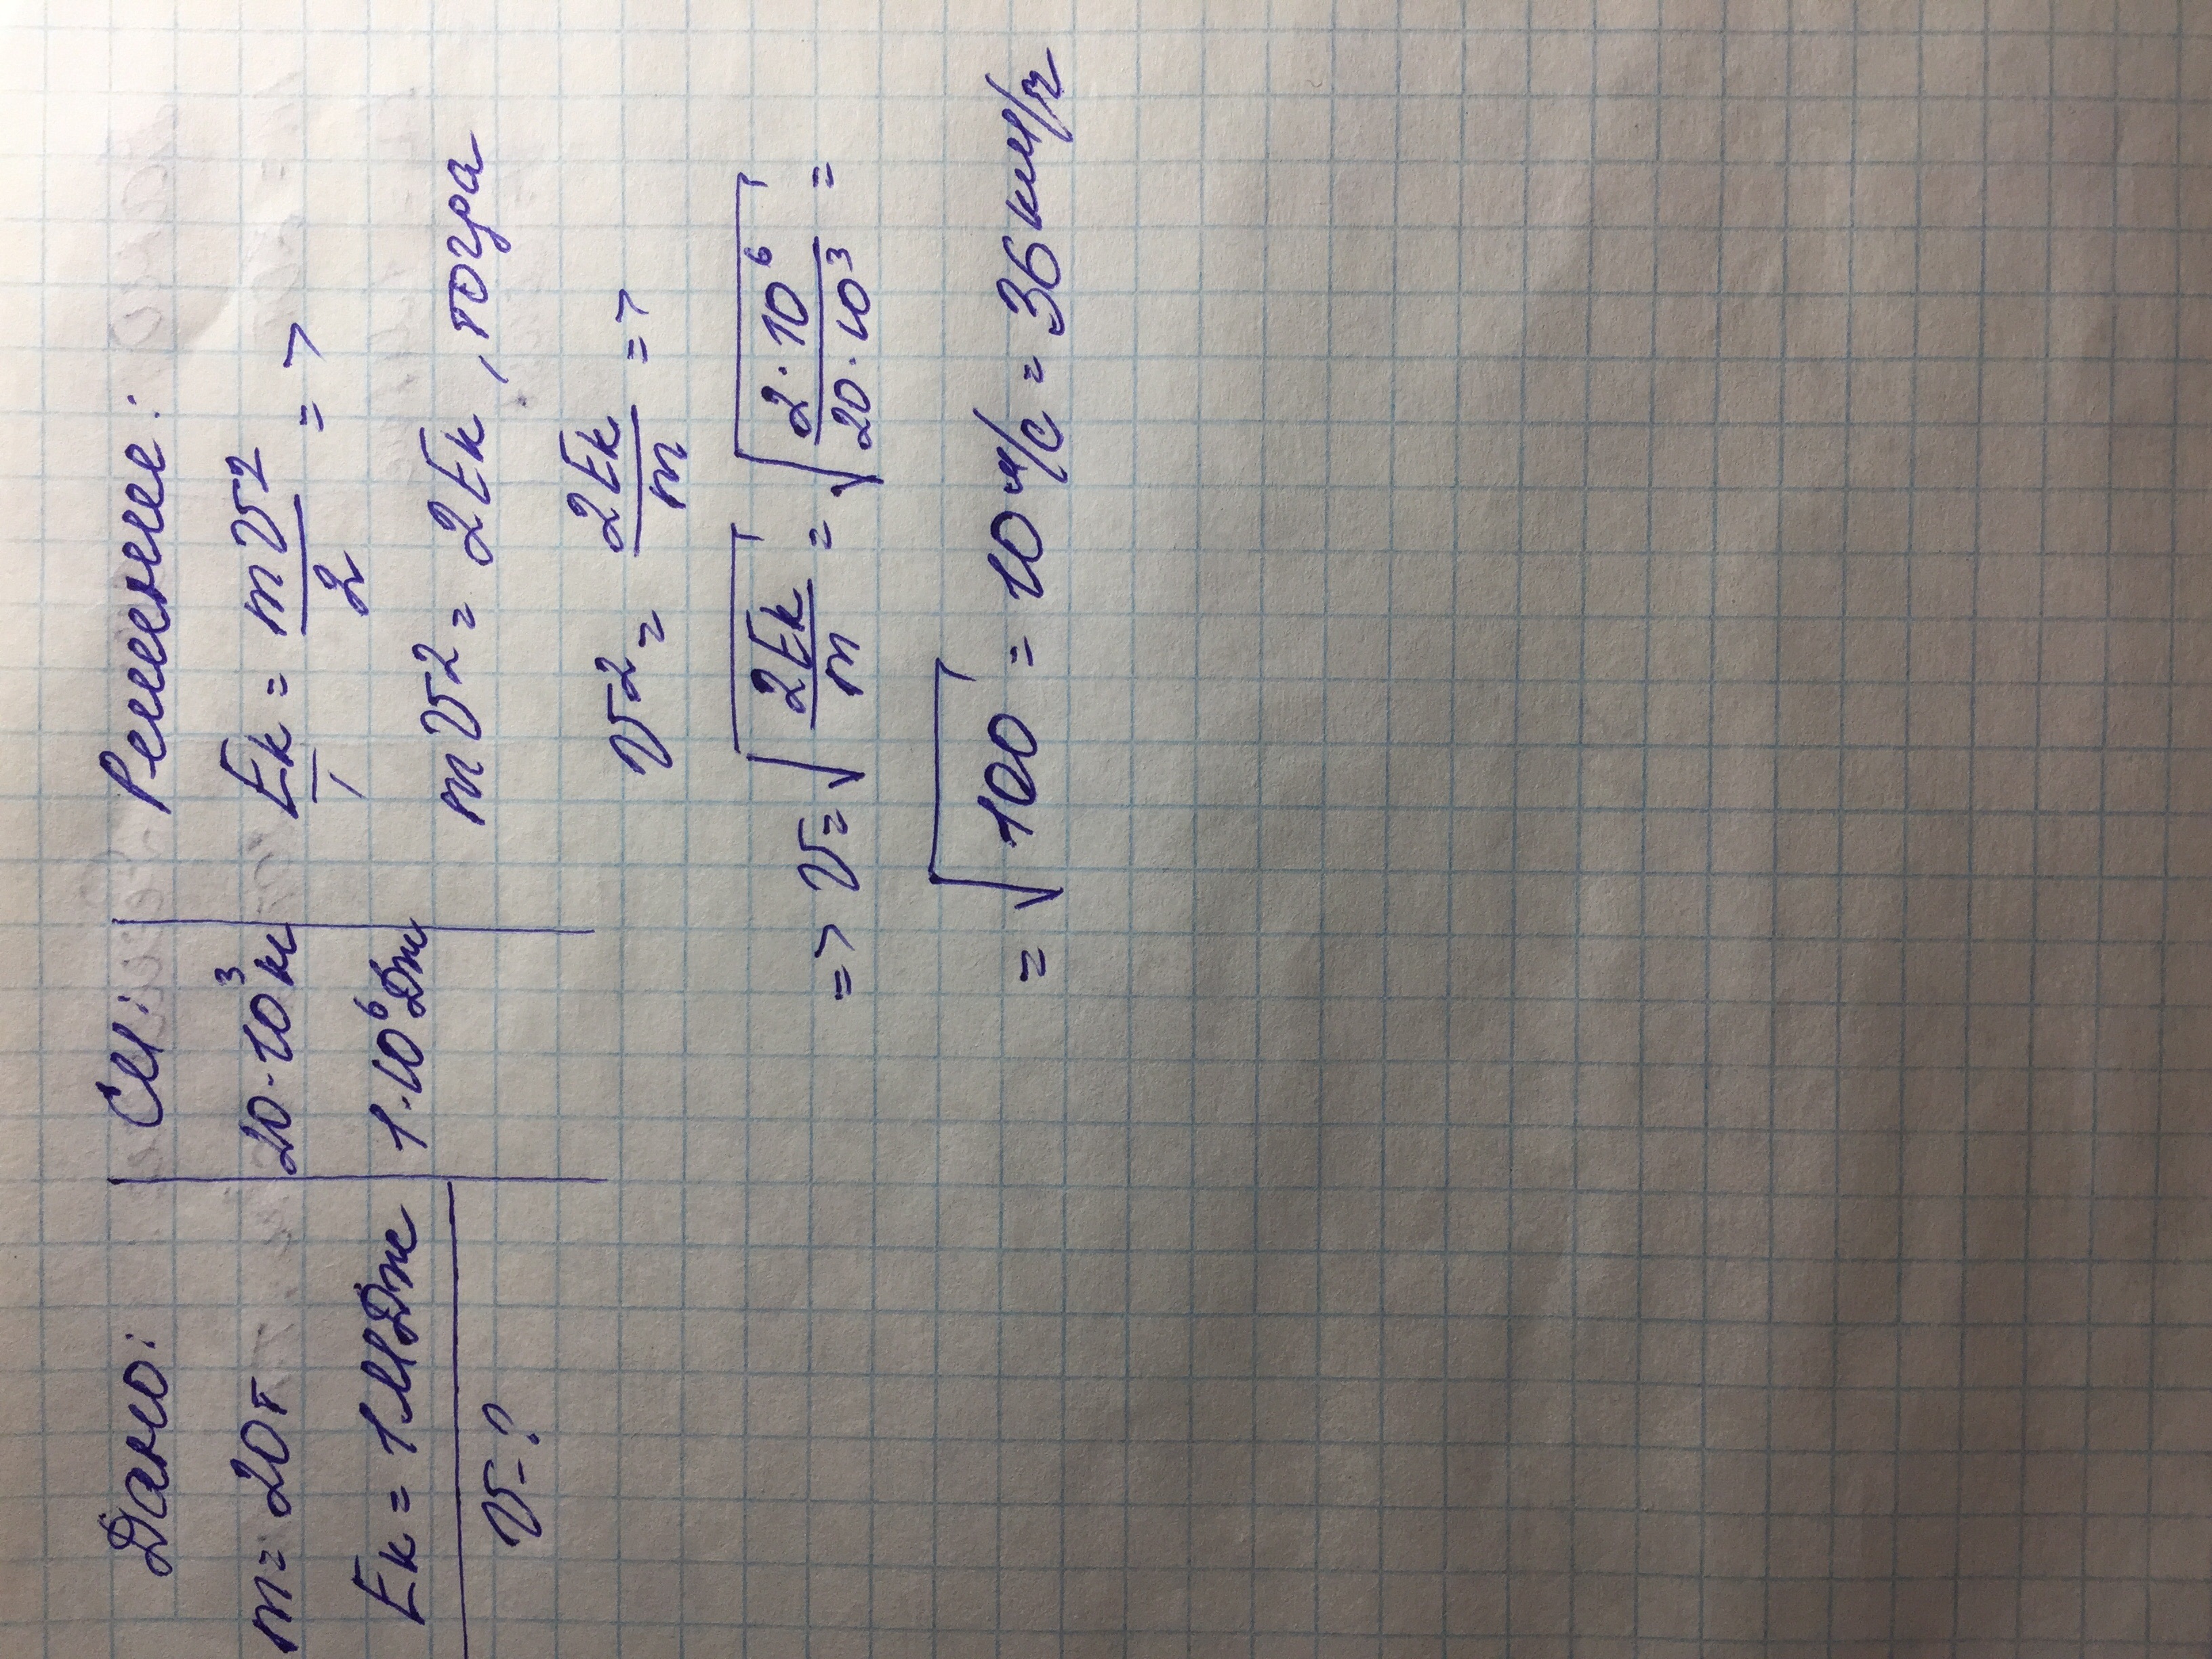 Дано:
m = 20т
Eк = 1МДж
v - ?
СИ:
20·10³ кг
1·10⁶ Дж
Решение:
Eк/1 = mv²/2 =>
mv² = 2Eк, тогда
v² = 2Eк/m =>
=> v = √(2Eк/m) = √(2·10⁶/20·10³) =
= √100 = 10 м/с = 36 км/ч